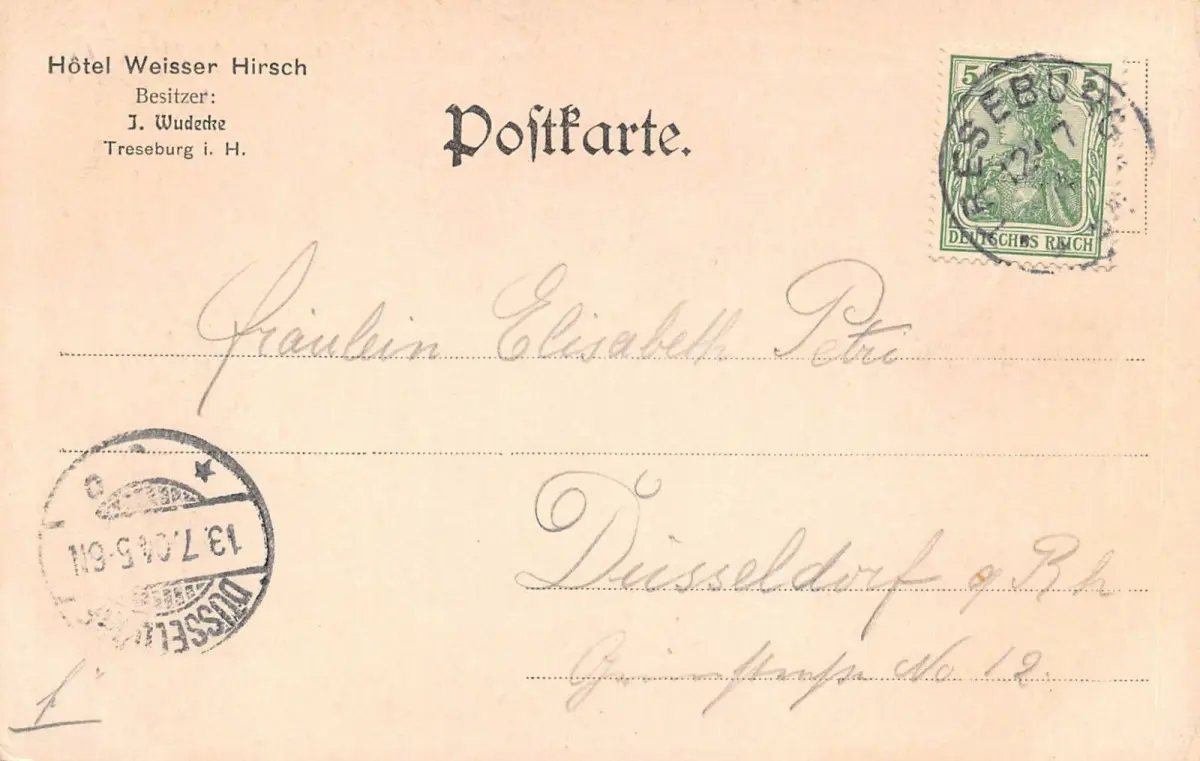 Hôtel Weisser Hirsch
Besitzer:
J. Wudecke
Treseburg i. H.
Postkarte.
5 5
DEUTSCHES REICH
TRESEBURG
12 7
Fräulein Elisabeth Petri
Düsseldorf a Rh
No 12.
13.7.04 5-6N
DÜSSELDORF